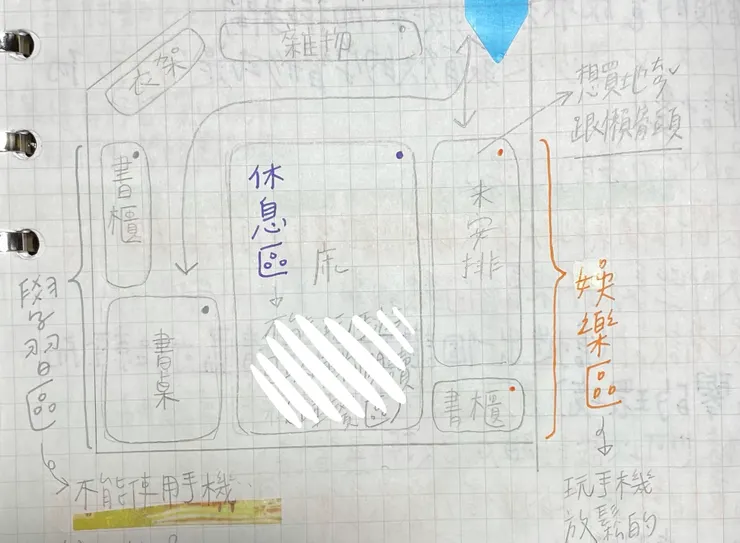 雜物
衣架
想買地毯
跟懶骨頭
書櫃
休息區
床
未安排
學習區
書桌
娛樂區
書櫃
不能使用手機
玩手機
放鬆的